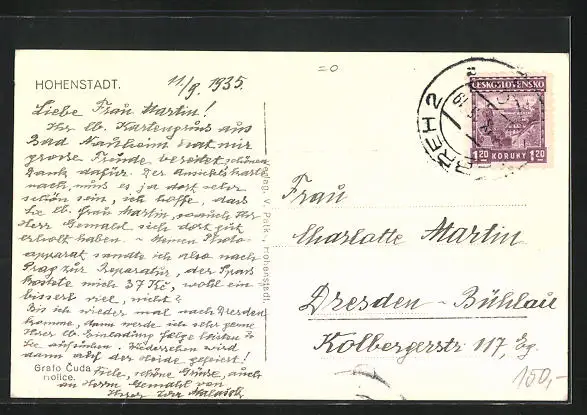 HOHENSTADT. 11/9. 1935.
Liebe Frau Martin!
Ihr lb. Kartengruss aus
Bad Nauheim hat mir
grosse Freude bereitet, schönen
Dank dafür. Der Ansichtskarte
nach, muss es ja dort sehr
schön sein, ich hoffe, dass
Sie lb. Frau Martin, sowie Ihr
Herr Gemahl sich dort gut
erholt haben. - Meinen Photo-
apparat sandte ich also nach
Prag zur Reparatur, der Spass
kostete mich 37 Kč, wohl ein
bisserl viel, nicht?
Bis ich wieder mal nach Dresden
komme, dann werde ich sehr gerne
Ihrer lb. Einladung Folge leisten u.
Sie aufsuchen. Wiedersehen wird
dann auf der Heide gefeiert!
Viele, schöne Grüsse, auch
an Herrn Gemahl von
Ihrer
Grafo Čuda
Holice.
V. Patk, Hohenstadt.
ČESKOSLOVENSKO
1.20 KORUNY 1.20
BREH 2
Frau
Charlotte Martin
Dresden-Bühlau
Kolbergerstr. 117, Eg.
150,-